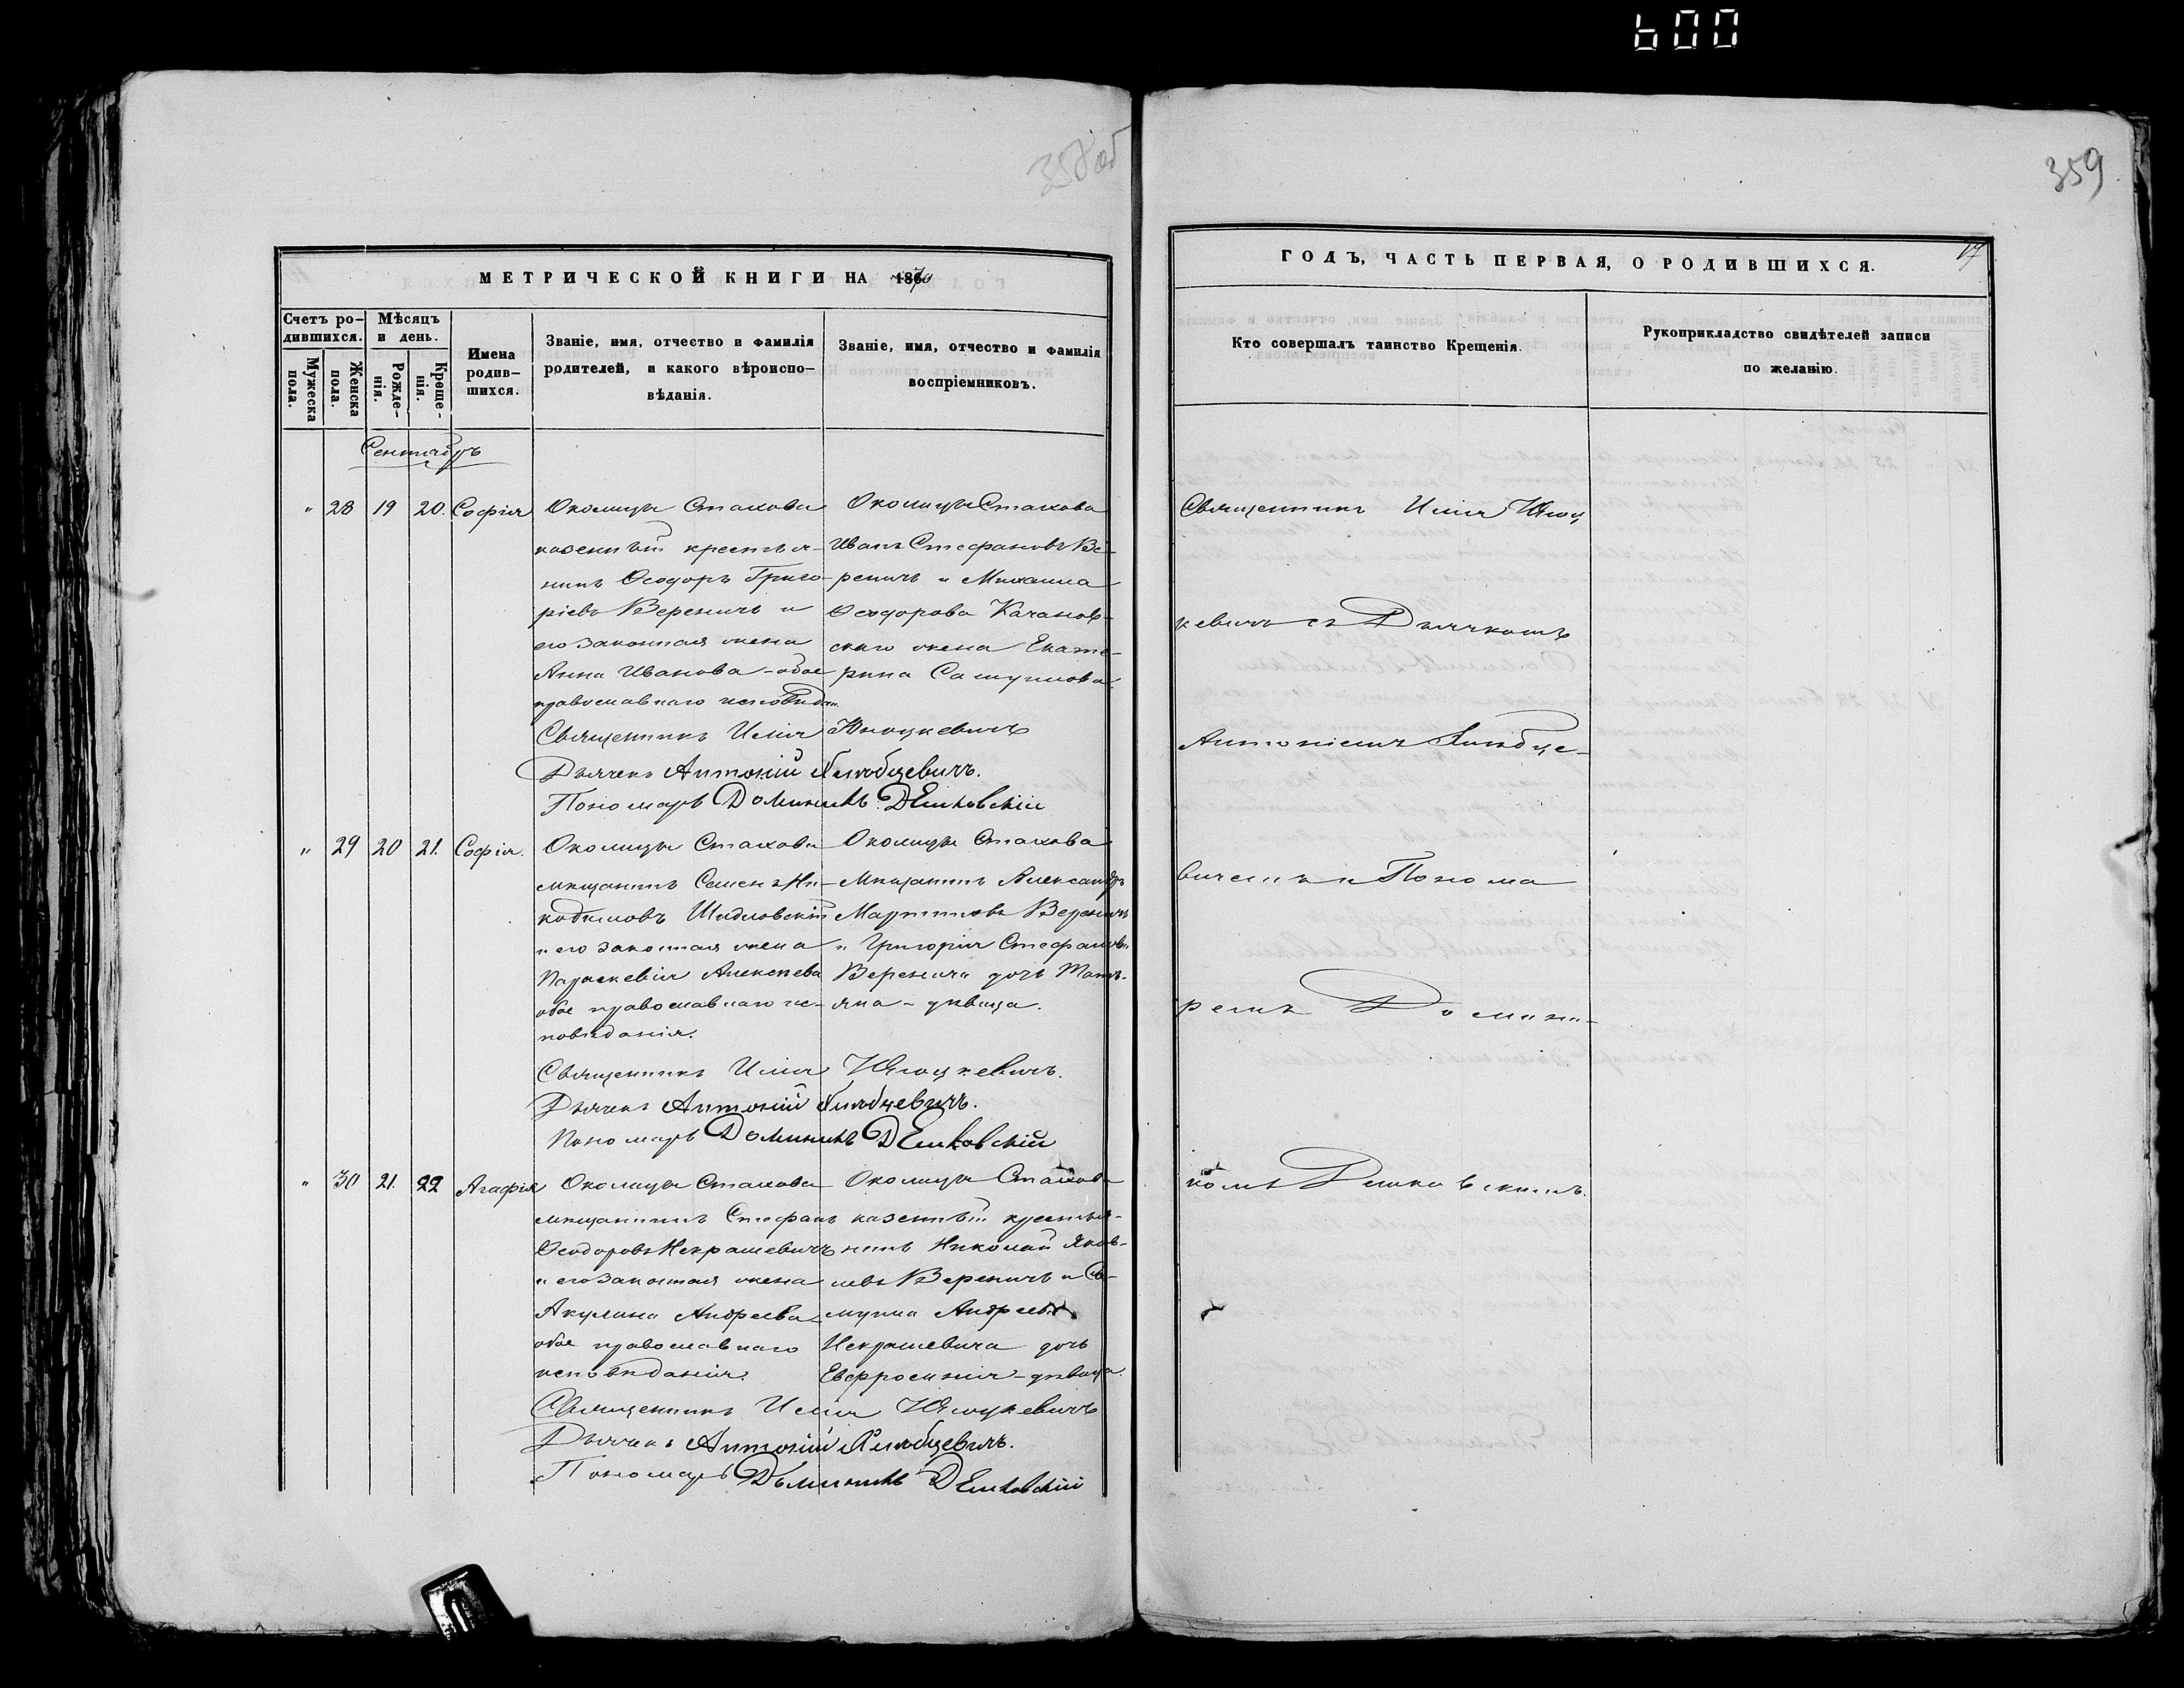 600
358 об
359
МЕТРИЧЕСКОЙ КНИГИ НА 1870
ГОДЪ, ЧАСТЬ ПЕРВАЯ, О РОДИВШИХСЯ.
17
Счетъ ро-
дившихся.
Мужеска
пола.
Женска
пола.
Мѣсяцъ
и день.
Рожде-
нія.
Креще-
нія.
Имена
родив-
шихся.
Званіе, имя, отчество и фамилія
родителей, и какого вѣроиспо-
вѣданія.
Званіе, имя, отчество и фамилія
воспріемниковъ.
Кто совершалъ таинство Крещенія.
Рукоприкладство свидѣтелей записи
по желанію.
Сентябрь
" 28 19 20. Софія
Околицы Стахова
казенный крестья-
нинъ Ѳеодоръ Григо-
ріевъ Вереничъ и
его законная жена
Анна Иванова - обое
православнаго исповѣдан.
Околицы Стахова
Иванъ Стефановъ Ве-
реничъ и Михаила
Ѳеодорова Качанов-
скаго жена Екате-
рина Самуилова.
Священникъ Илія Юноцкевичъ
Дьячекъ Антоній Хиндцевичъ.
Пономарь Доминикъ Демковскій
" 29 20 21. Софія.
Околицы Стахова
мѣщанинъ Семенъ Ни-
кодимовъ Шидловскій
и его законная жена
Параскевія Алексѣева
обое православнаго ис-
повѣданія.
Околицы Стахова
Мѣщанинъ Александръ
Мартиновъ Вереничъ
и Григорія Стефанов.
Веренича дочь Тать-
яна - дѣвица.
Священникъ Илія Юноцкевичъ.
Дьячекъ Антоній
Пономарь Доминикъ Демковскій
" 30 21. 22 Агафія
Околицы Стахова
мѣщанинъ Стефанъ
Ѳеодоровъ Некрашевичъ
и его законная жена
Акулина Андреева
обое православнаго
исповѣданія.
Околицы Стахова
казенный крестья-
нинъ Николай Яков-
левъ Вереничъ и Са-
муила Андреева
Некрашевича дочь
Евфросинія - дѣвица.
Священникъ Илія Юноцкевичъ
Дьячекъ Антоній
Пономарь Доминикъ Демковскій
Священникъ Илія Юноц
кевичъ съ Дьячкомъ
Антоніемъ
вичемъ и Понома
ремъ Домини-
комъ Демковскимъ.